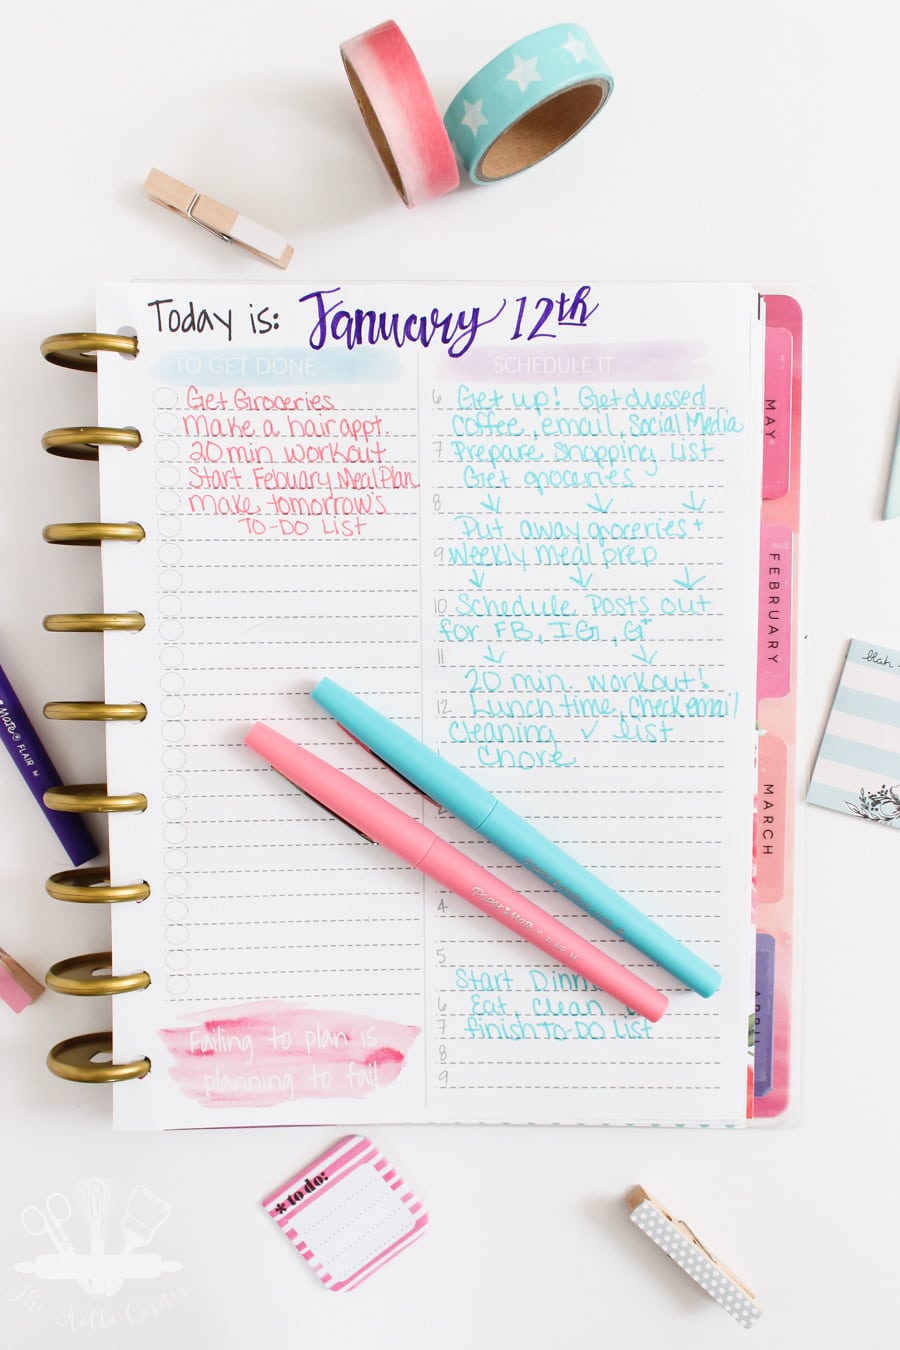 Today is: January 12th
TO GET DONE
Get Groceries
Make a hair appt.
20 min workout
Start Febuary Meal Plan
Make tomorrow's
TO-DO LIST
Failing to plan is
planning to fail
SCHEDULE IT
6 Get up! Get dressed
coffee, email, Social Media
7 Prepare Shopping List
Get groceries
8
Put away groceries +
9 Weekly meal prep
10 Schedule Posts out
for FB, IG, G+
11
20 min. workout!
12 Lunch time, Check email
Cleaning ✓ list
Chore
4
5
Start
6 Eat, Clean
7 finish TO-DO LIST
8
9
MAY
FEBRUARY
MARCH
APRIL
Paper Mate FLAIR M
Mate FLAIR M
blah
* to do:
The Kolls Corner